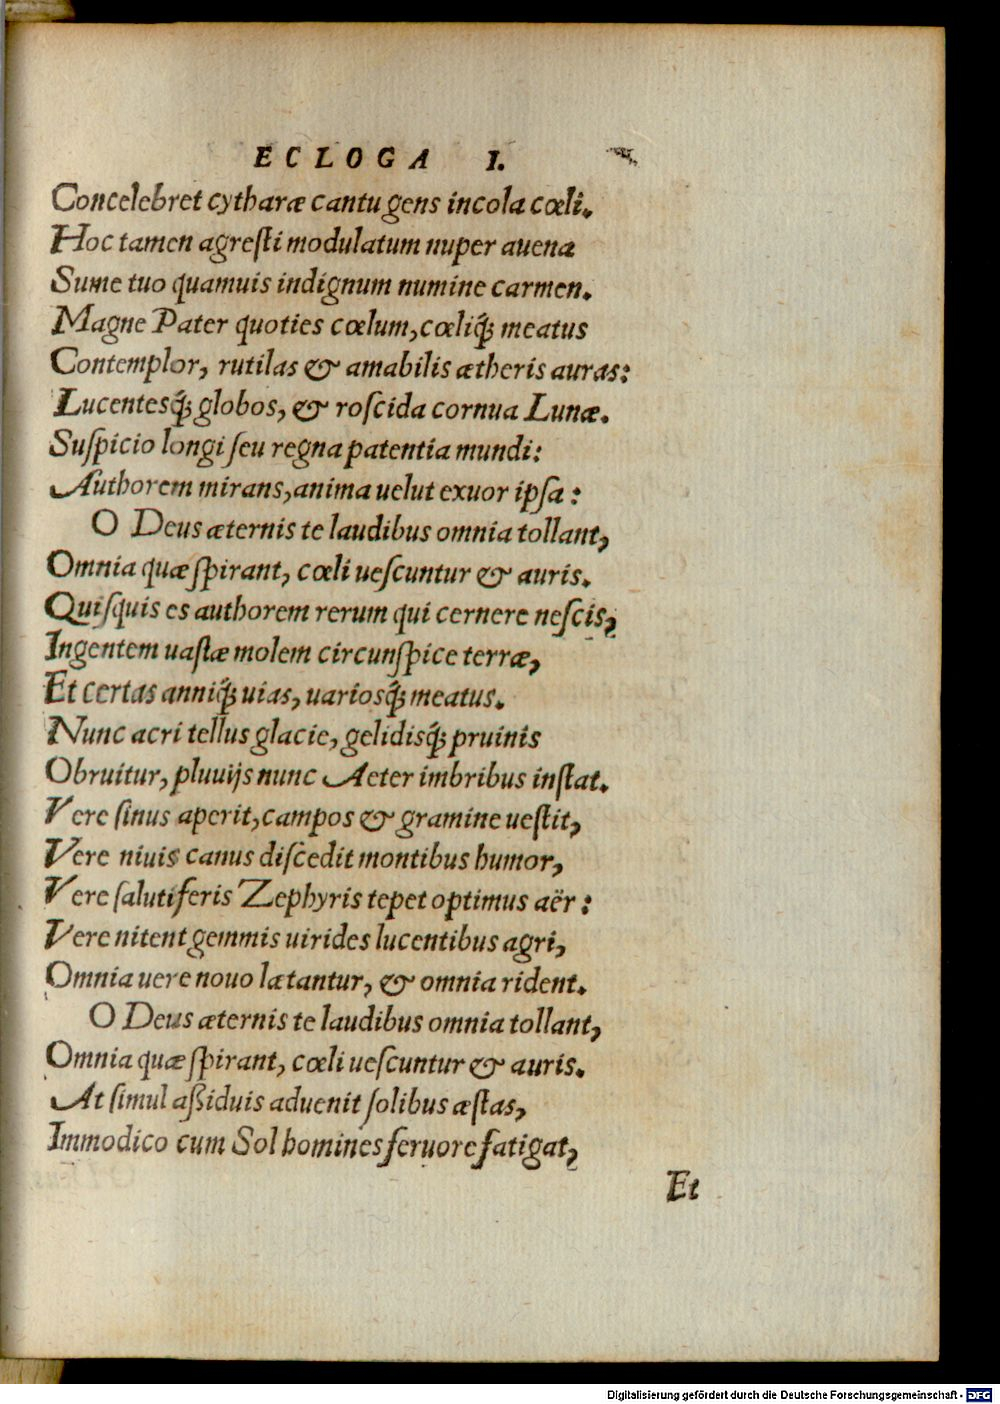 ECLOGA I.
Concelebret cytharæ cantu gens incola cœli.
Hoc tamen agreſti modulatum nuper auena
Sume tuo quamuis indignum numine carmen.
Magne Pater quoties cœlum, cœliq́ꝫ meatus
Contemplor, rutilas & amabilis ætheris auras:
Lucentesq́ꝫ globos, & roſcida cornua Lunæ.
Suſpicio longi ſeu regna patentia mundi:
Authorem mirans, anima uelut exuor ipſa:
O Deus æternis te laudibus omnia tollant,
Omnia quæ ſpirant, cœli ueſcuntur & auris.
Quiſquis es authorem rerum qui cernere neſcis,
Ingentem uaſtæ molem circunſpice terræ,
Et certas anniq́ꝫ uias, uariosq́ꝫ meatus.
Nunc acri tellus glacie, gelidisq́ꝫ pruinis
Obruitur, pluuijs nunc Aeter imbribus inſtat.
Vere ſinus aperit, campos & gramine ueſtit,
Vere niuis canus diſcedit montibus humor,
Vere ſalutiferis Zephyris tepet optimus aër:
Vere nitent gemmis uirides lucentibus agri,
Omnia uere nouo lætantur, & omnia rident.
O Deus æternis te laudibus omnia tollant,
Omnia quæ ſpirant, cœli ueſcuntur & auris.
At ſimul aßiduis aduenit ſolibus æſtas,
Immodico cum Sol homines feruore fatigat,
Et
Digitalisierung gefördert durch die Deutsche Forschungsgemeinschaft - DFG